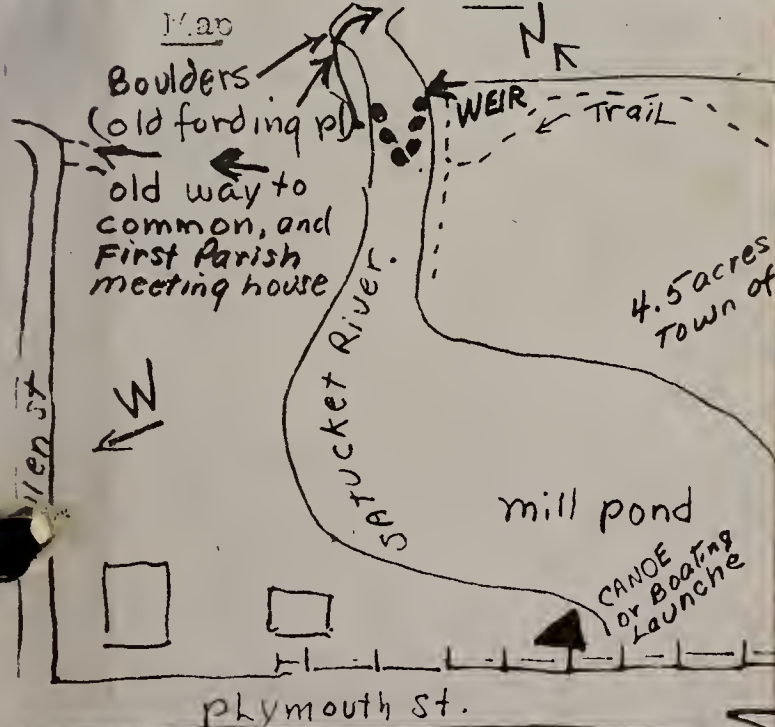 Map
N
Boulders
(old fording pl.
WEIR
Trail
old way to
common, and
First Parish
meeting house
4.5 acres
Town of
SATUCKET RIVER.
W
st
mill pond
CANOE
or Boating
Launche
plymouth st.